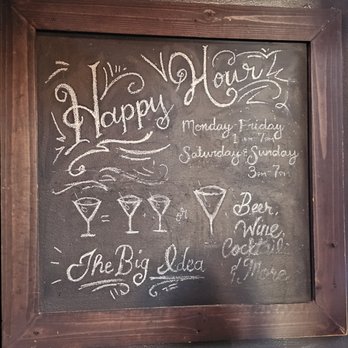 Happy Hour
Monday-Friday
1pm-7pm
Saturday & Sunday
3pm-7pm
= or
Beer,
Wine,
Cocktails
& More
The Big Idea